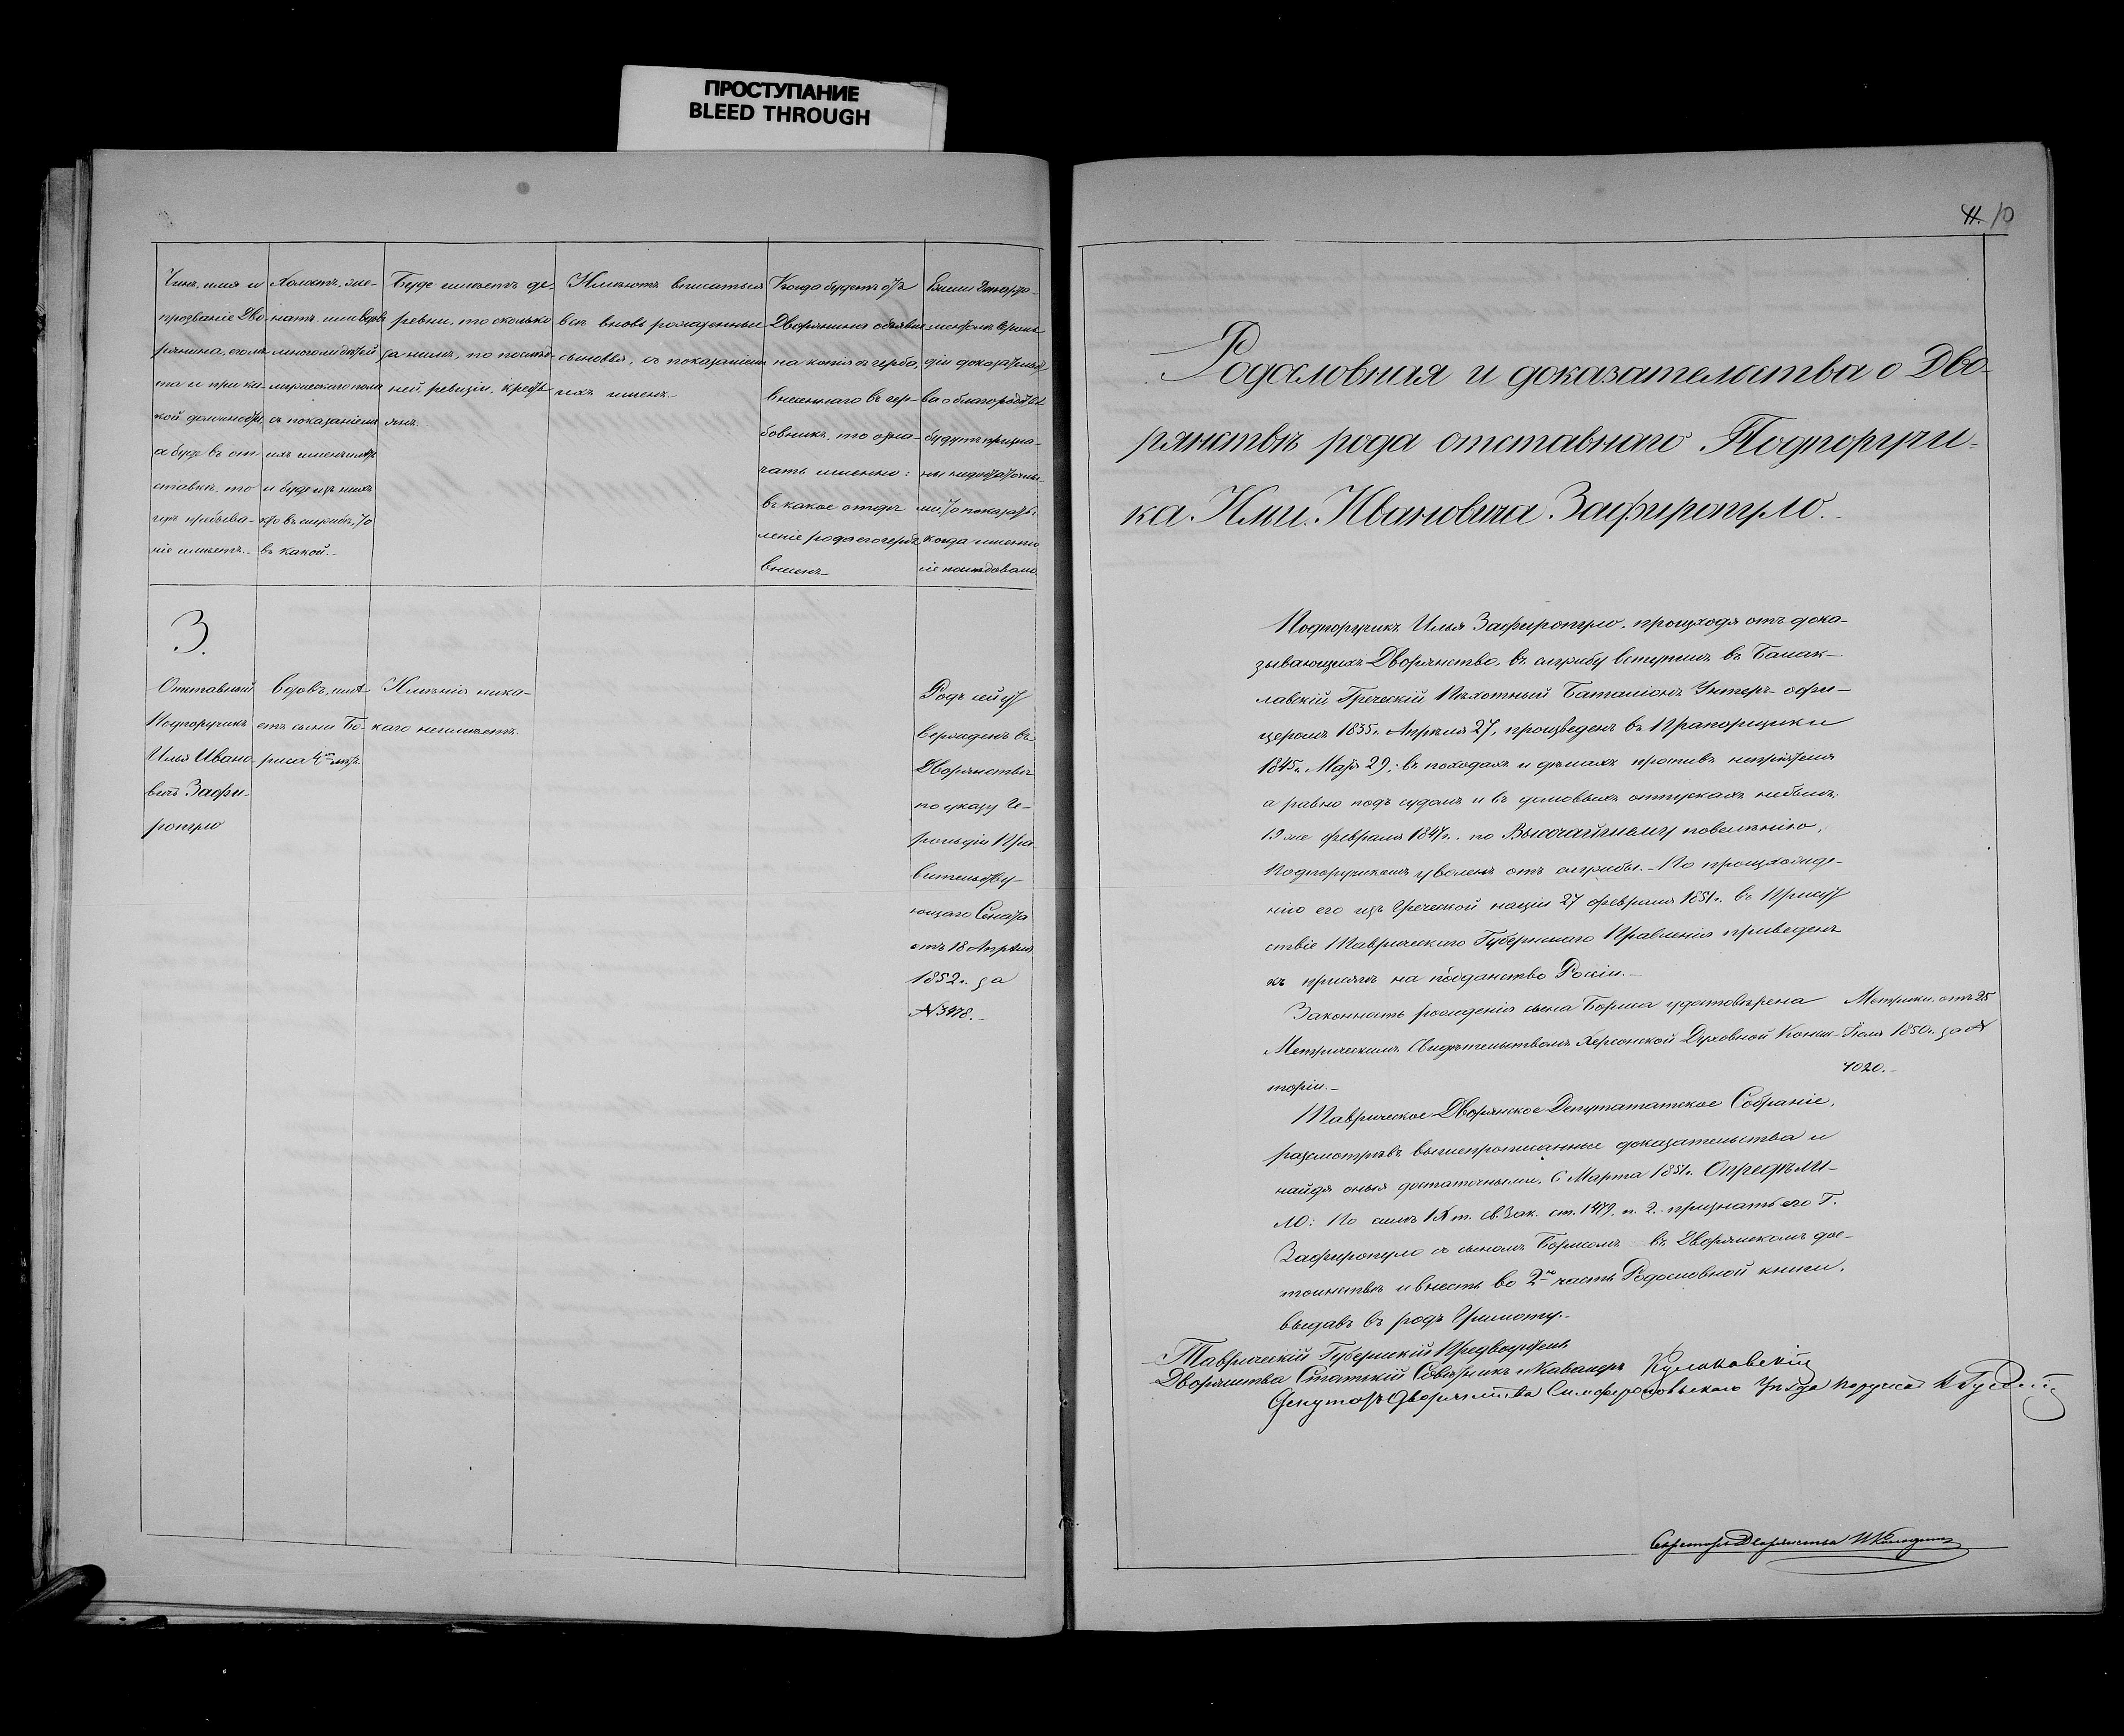 ПРОСТУПАНИЕ
BLEED THROUGH
Чинъ, имя и
прозваніе Дво-
рянина, его лѣ-
та и при ка-
кой должности,
а буде въ от-
ставкѣ, то
гдѣ пребыва-
ніе имѣетъ.-
Холостъ, же-
натъ или вдовъ
и много ли дѣтей
мужескаго пола
съ показаніемъ
ихъ именъ и лѣтъ
и буде изъ нихъ
кто въ службѣ, то
въ какой.-
Буде имѣетъ де-
ревни, то сколько
за нимъ, по послѣд-
ней ревизіи, кресть
янъ.
Имѣютъ вписаться
всѣ вновь рожденные
сыновья, съ показаніемъ
ихъ именъ.-
Когда будетъ отъ
Дворянина объявле-
на копія съ герба,
внесеннаго въ гер-
бовникъ, то озна-
чать именно:
въ какое отдѣ
леніе рода его гербъ
внесенъ-
Ежели Департа-
ментомъ Героль
діи доказательст
ва о благородствѣ
будутъ призна-
ны недостаточны-
ми, то показать.
когда именно
сіе послѣдовало.
3.
Отставный
Подпоручикъ
Илья Ивано-
вичъ Зафи-
ропуло
Вдовъ, имѣ-
етъ сына Бо-
риса 4хъ лѣтъ.
Имѣнія ника-
каго неимѣетъ.
Родъ сей ут
вержденъ въ
Дворянствѣ
по указу Ге-
рольдіи Пра-
вительству-
ющаго Сената
отъ 18 Апрѣля
1852 г. за
№ 3978.-
11. 10
Родословная и доказательства о Дво-
рянствѣ рода отставнаго Подпоручи-
ка Ильи Ивановича Зафиропуло.-
Подпоручикъ Илья Зафиропуло, происходя отъ дока-
зывающихъ Дворянство, въ службу вступилъ въ Балак-
лавскій Греческій Пѣхотный Баталіонъ Унтеръ-офи-
церомъ 1835 г. Апрѣля 27, произведенъ въ Прапорщики
1845 г. Маія 29; въ походахъ и дѣлахъ противъ непріятеля
а равно подъ судомъ и въ домовыхъ отпускахъ небылъ.
19 же февраля 1847 г. по Высочайшему повелѣнію,
Подпоручикомъ уволенъ отъ службы.- По происхожде-
нію его изъ Греческой націи 27 февраля 1851 г. въ Присут
ствіе Таврическаго Губернскаго Правленія приведенъ
къ присягѣ на подданство Россіи.-
Законность рожденія сына Бориса удостовѣрена
Метрическимъ Свидѣтельствомъ Херсонской Духовной Консис-
торіи.-
Метрики. отъ 25
Іюля 1850 г. за №
4020.-
Таврическое Дворянское Депутатское Собраніе,
разсмотрѣвъ вышепрописанные доказательства и
найдя оныя достаточными, 6 Марта 1851 г. Опредѣли-
ло: По силѣ IX т. св. Зак. ст. 1479. п. 2. признать его Г.
Зафиропуло съ сыномъ Борисомъ въ Дворянскомъ дос-
тоинствѣ и внесть во 2ю часть Родословной книги,
выдавъ въ родъ Грамоту.-
Таврическій Губернскій Предводитель
Дворянства Статскій Совѣтникъ и Кавалеръ
Депутатъ Дворянства Симферопольскаго Уѣзда Поручикъ
Секретарь Дворянства